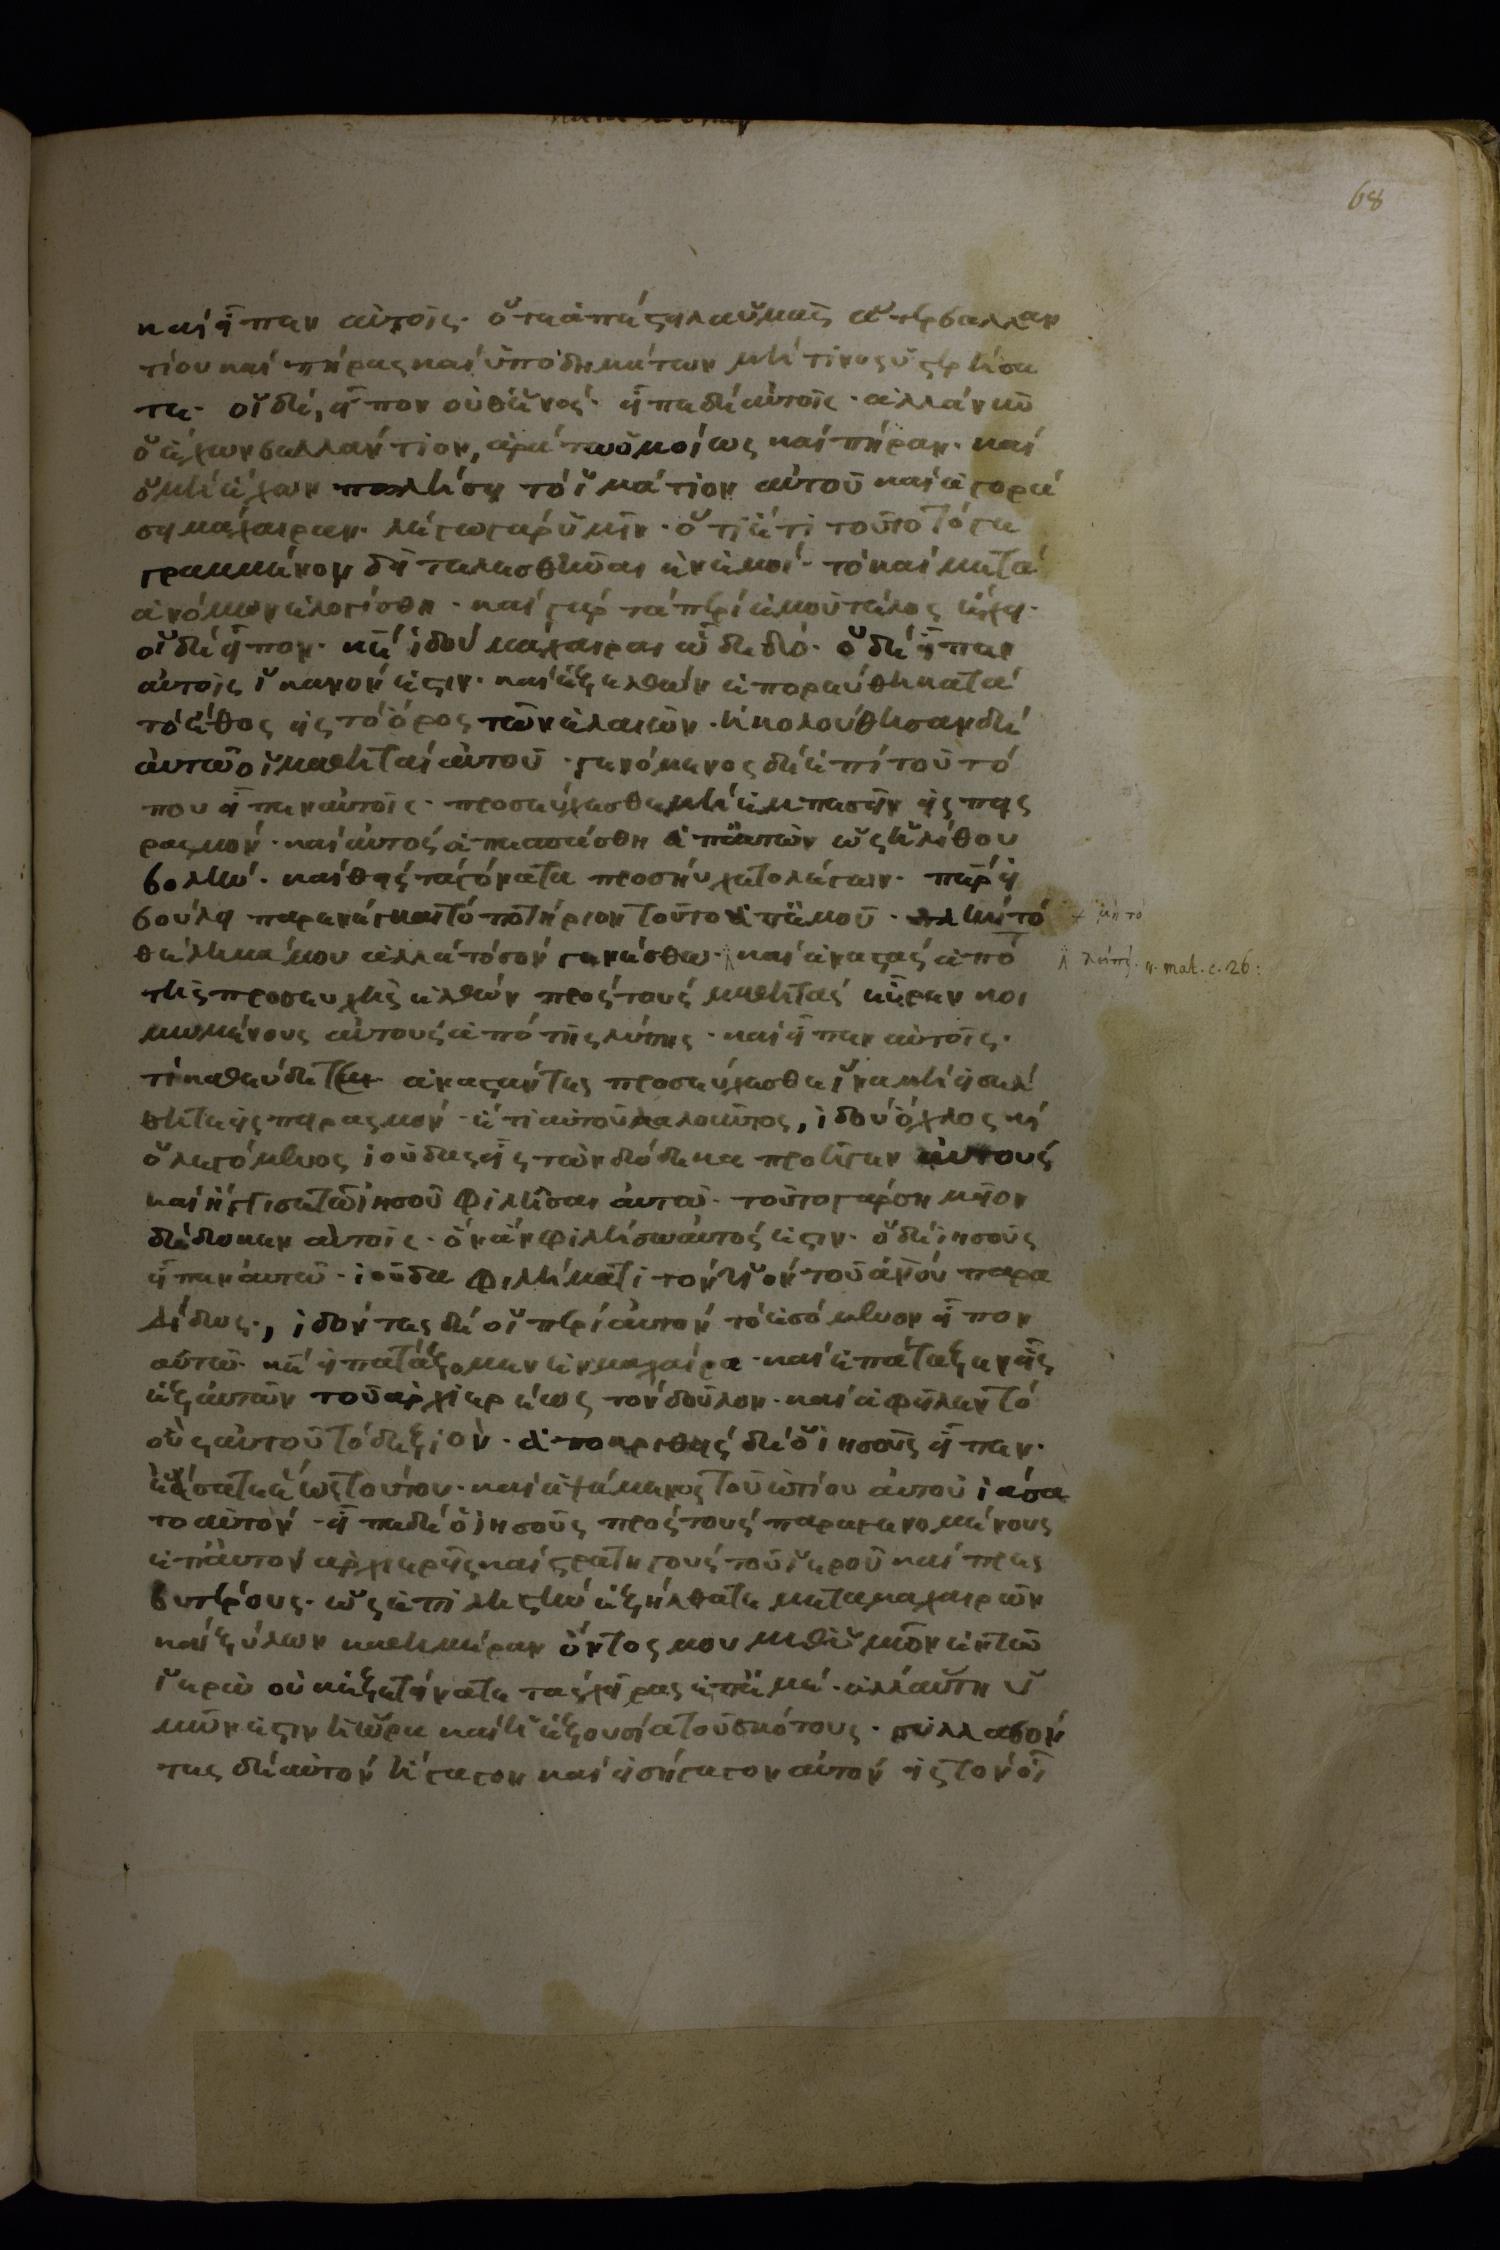 68
καὶ εἶπεν αὐτοῖς· ὅτε ἀπέστειλα ὑμᾶς ἄτερ βαλλαν
τίου καὶ πήρας καὶ ὑποδημάτων μή τινος ὑστερήσα
τε· οἱ δὲ, εἶπον οὐθενός· εἶπε δὲ αὐτοῖς· ἀλλὰ νῦν
ὁ ἔχων βαλλάντιον, ἀράτω ὁμοίως καὶ πήραν· καὶ
ὁ μὴ ἔχων πωλήσει τὸ ἱμάτιον αὐτοῦ καὶ ἀγορά
σει μάχαιραν· λέγω γὰρ ὑμῖν· ὅτι ἔτι τοῦτο τὸ γε
γραμμένον δεῖ τελεσθῆναι ἐν ἐμοί· τὸ καὶ μετὰ
ἀνόμων ἐλογίσθη· καὶ γὰρ τὰ περὶ ἐμοῦ τέλος ἔχει·
οἱ δὲ εἶπον· κε ἰδοὺ μάχαιραι ὧδε δύο· ὁ δὲ εἶπεν
αὐτοῖς ἱκανόν ἐστιν· καὶ ἐξελθὼν ἐπορεύθη κατὰ
τὸ ἔθος εἰς τὸ ὄρος τῶν ἐλαιῶν· ἠκολούθησαν δὲ
αὐτῶ οἱ μαθηταὶ αὐτοῦ· γενόμενος δὲ ἐπὶ τοῦ τό
που εἶπεν αὐτοῖς· προσεύχεσθε μὴ ἐμπεσεῖν εἰς πει
ρασμόν· καὶ αὐτὸς ἀπεσπάσθη ἀπ αὐτῶν ὡσεὶ λίθου
βολήν· καὶ θεὶς τὰ γόνατα προσηύχετο λέγων· πάτερ εἰ
βούλει παρενέγκαι τὸ ποτήριον τοῦτο ἀπ ἐμοῦ· πλὴν μὴ τὸ + μὴ τὸ
θέλημά μου ἀλλὰ τὸ σὸν γενέσθω· καὶ ἀναστὰς ἀπὸ λείπει· mat. c. 26:
τῆς προσευχῆς ἐλθὼν πρὸς τοὺς μαθητὰς εὗρεν κοι
μωμένους αὐτοὺς ἀπὸ τῆς λύπης· καὶ εἶπεν αὐτοῖς·
τί καθεύδετε ἀναστάντες προσεύχεσθε ἵνα μὴ εἰσέλ
θητε εἰς πειρασμόν· ἔτι αὐτοῦ λαλοῦντος, ἰδοὺ ὄχλος καὶ
ὁ λεγόμενος ἰούδας εἷς τῶν δώδεκα προῆγεν αὐτοὺς
καὶ ἤγγισε τῶ ἰησοῦ φιλῆσαι αὐτῶ· τοῦτο γὰρ σημεῖον
δέδωκεν αὐτοῖς· ὃν ἂν φιλήσω αὐτός ἐστιν· ὁ δὲ ἰησοῦς
εἶπεν αὐτῶ· ἰούδα φιλήματι τὸν υἱὸν τοῦ ἀνου παρα
δίδως·, ἰδόντες δὲ οἱ περὶ αὐτὸν τὸ ἐσόμενον εἶπον
αὐτῶ· κε εἰ πατάξομεν ἐν μαχαίρα· καὶ ἐπάταξεν εἷς
ἐξ αὐτῶν τοῦ ἀρχιερέως τὸν δοῦλον· καὶ ἀφεῖλεν τὸ
οὖς αὐτοῦ τὸ δεξιὸν· ἀποκριθεὶς δὲ ὁ ἰησοῦς εἶπεν·
ἐάσατε ἕως τούτου· καὶ ἁψάμενος τοῦ ὠτίου αὐτοῦ ἰάσα
το αὐτόν· εἶπε δὲ ὁ ἰησοῦς πρὸς τοὺς παραγενομένους
ἐπ αὐτὸν ἀρχιερεῖς καὶ στρατηγοὺς τοῦ ἱεροῦ καὶ πρες
βυτέρους· ὡς ἐπὶ ληστὴν ἐξήλθατε μετα μαχαιρῶν
καὶ ξύλων καθημέραν ὄντος μου μεθ ὑμῶν ἐν τῶ
ἱερῶ οὐκ ἐξετείνατε τὰς χεῖρας ἐπ ἐμέ· ἀλλ αὕτη ὑ
μῶν ἐστιν ἡ ὥρα καὶ ἡ ἐξουσία τοῦ σκότους· συλλαβόν
τες δὲ αὐτὸν ἤγαγον καὶ εἰσήγαγον αὐτὸν εἰς τὸν οἶ